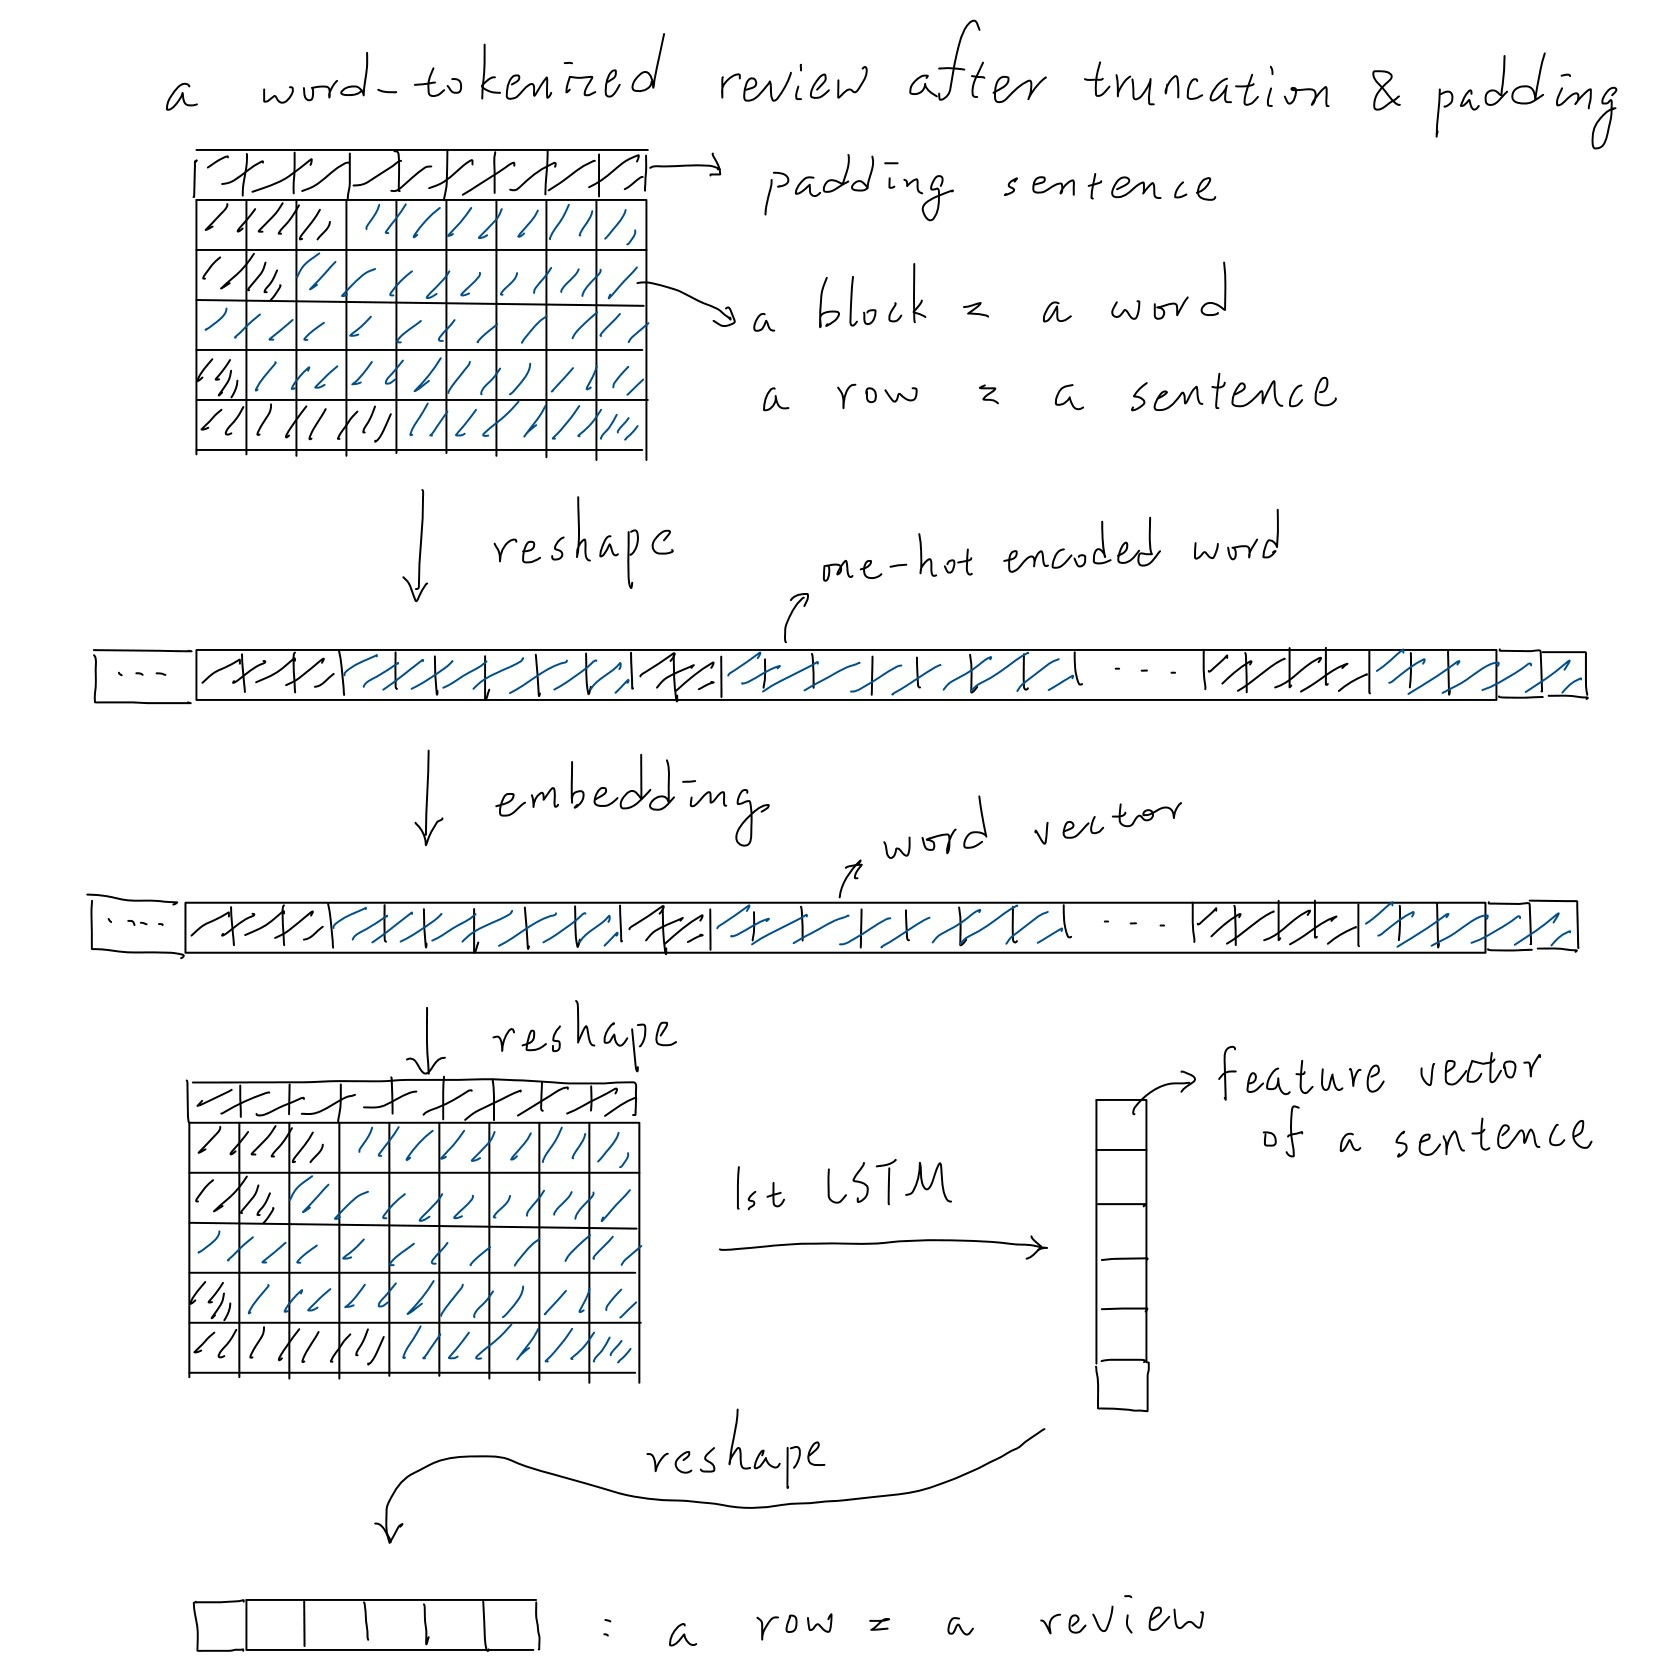 a word-tokenized review after truncation & padding
padding sentence
a block = a word
a row = a sentence
reshape
one-hot encoded word
...
...
embedding
word vector
....
...
reshape
feature vector
of a sentence
1st LSTM
reshape
: a row = a review